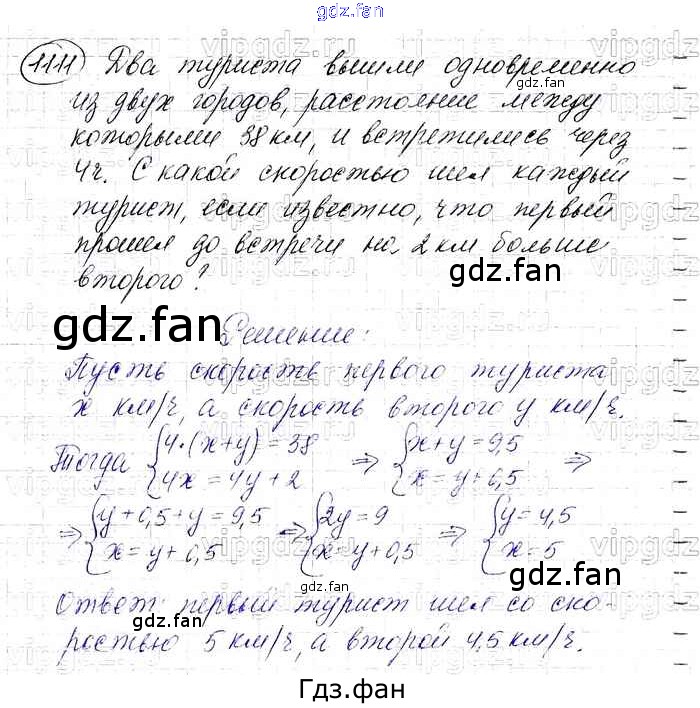 gdz.fan
1111 Два туриста вышли одновременно
из двух городов, расстояние между
которыми 38 км, и встретились через
4ч. С какой скоростью шел каждый
турист, если известно, что первый
прошел до встречи на 2 км больше
второго?
gdz.fan
gdz.fan
Решение:
Пусть скорость первого туриста
x км/ч, а скорость второго y км/ч.
Тогда {4·(x+y)=38 ⇒ {x+y=9,5 ⇒
{4x=4y+2 {x=y+0,5
⇒ {y+0,5+y=9,5 ⇒ {2y=9 ⇒ {y=4,5
{x=y+0,5 {x=y+0,5 {x=5
gdz.fan
gdz.fan
gdz.fan
Ответ: первый турист шел со ско-
ростью 5 км/ч, а второй 4,5 км/ч.
gdz.fan
Гдз.фан